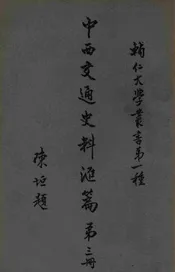 輔仁大學叢書第一種
中西交通史料滙篇第三冊
陳垣題